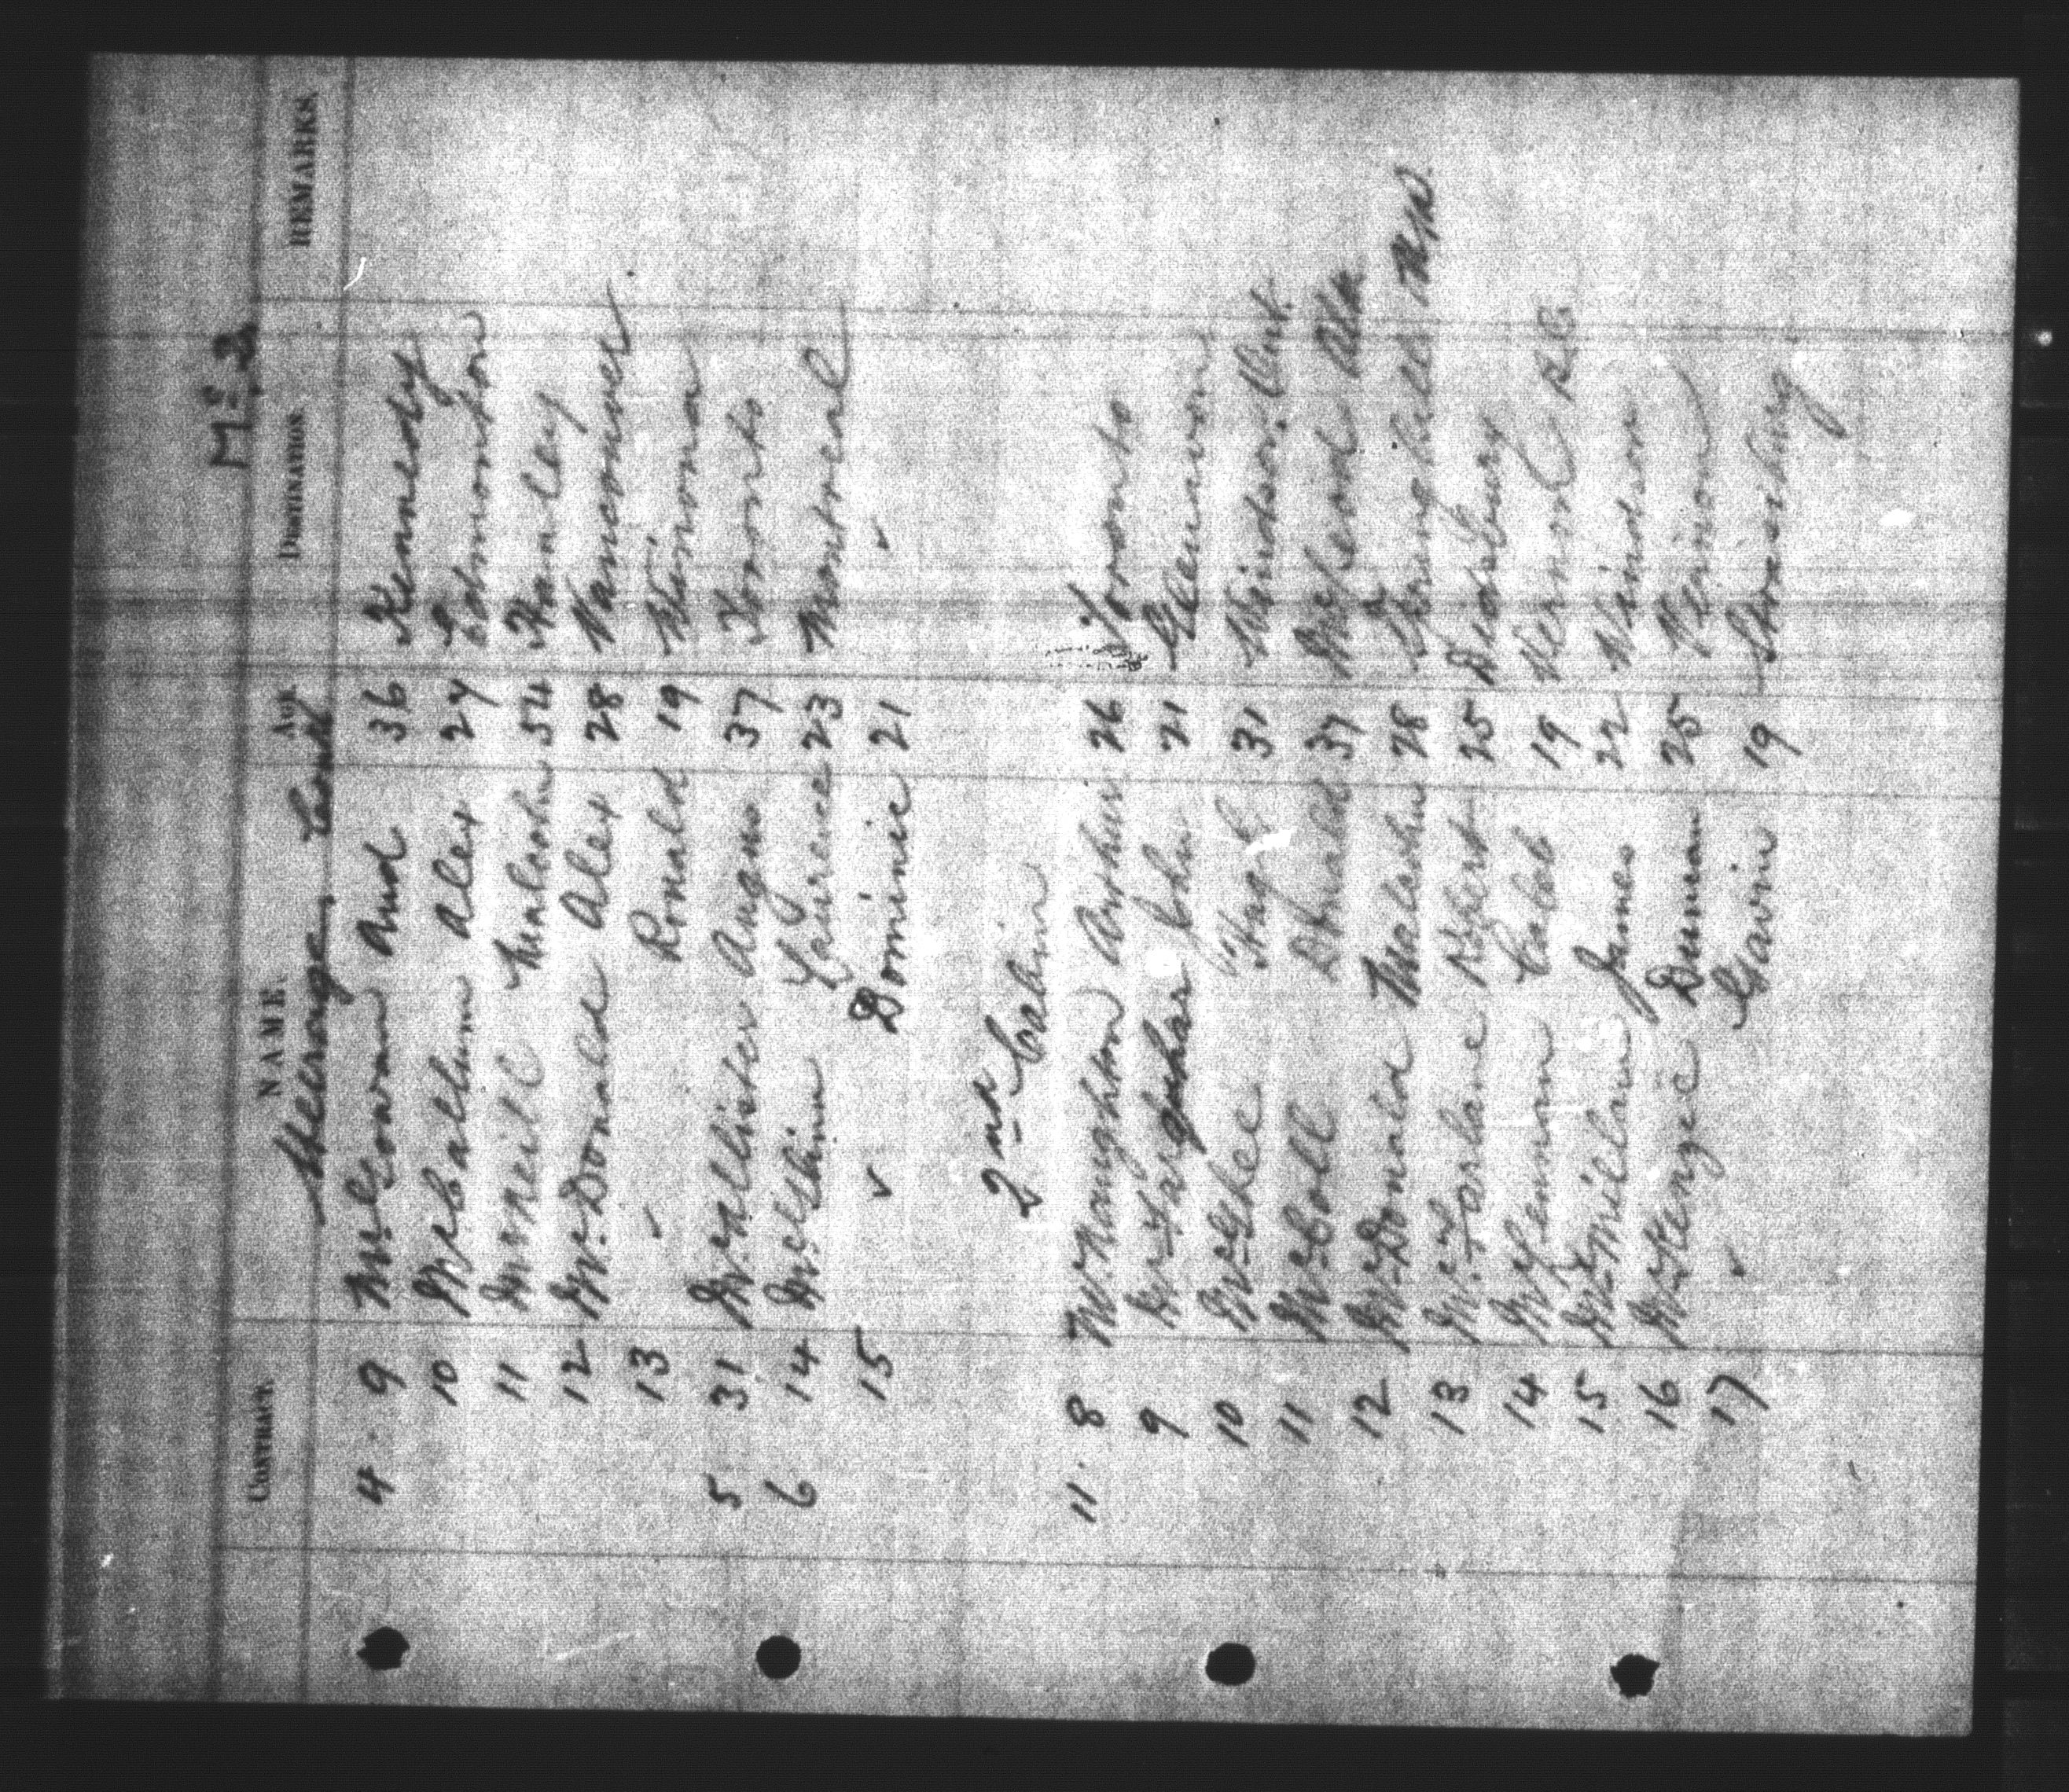 Mc 2.
CONTRACT. NAME. AGE DESTINATION REMARKS.
Steerage. Contd
4. 9 McGowan And 36 Kennedy
10 McCallum Alex 27 Edmonton
11 McNeil C Malcolm 54 Hanley
12 McDonald Alex 28 Vancouver
13 " Ronald 19 Winona
5 31 McAllister Angus 37 Toronto
6 14 Laurence 23 Montreal
15 " Dominic 21 "
2nd Cabin
11. 8 McNaughton Arthur 26 Toronto
9 McFarquhar John 21 Glenavon
10 McGhee Hugh 31 Windsor. Ont.
11 McColl Donald 37 McLeod Alta
12 McDonald Malcolm 28 Springhill N.S.
13 McFarlane Robert 25 Didsbury
14 McLennan Caleb 19 Vernon B.C.
15 McMillan James 22 Windsor
16 McKenzie Duncan 25 Vernon
17 " Gavin 19 Strassburg